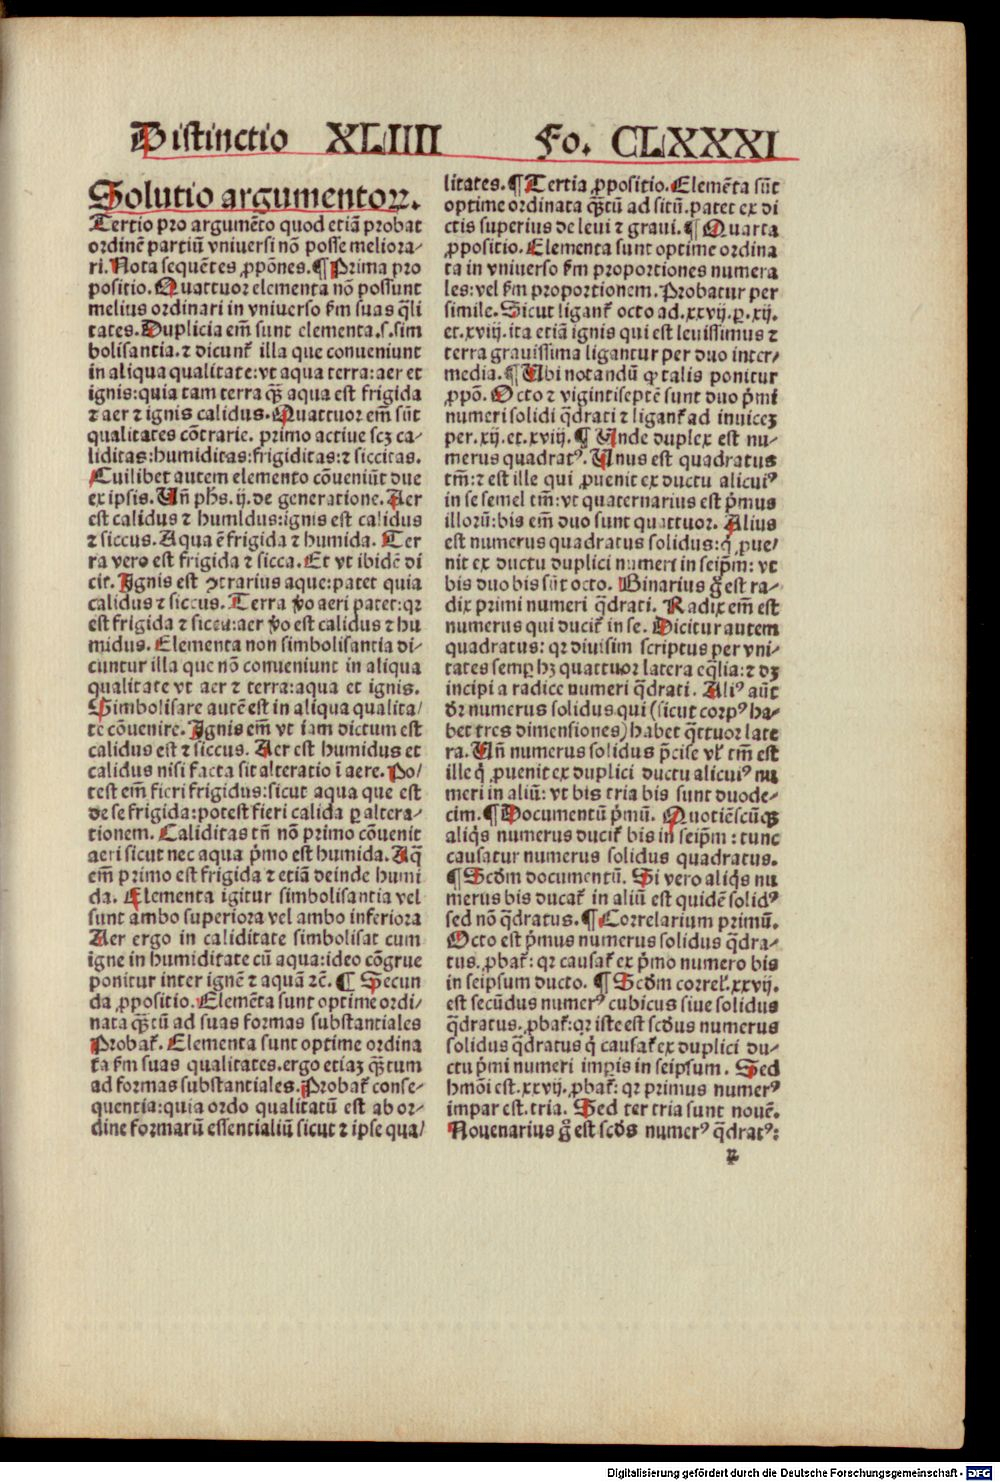 Distinctio XLIIII Fo. CLXXXI
Solutio argumentoꝝ.
Tertio pro argumēto quod etiā probat
ordinē partiū vniuersi nō posse meliora⸗
ri. Nota sequētes ꝓpōnes. ¶ Prima pro
positio. Quattuor elementa nō possunt
melius ordinari in vniuerso ẜm suas q̄li
tates. Duplicia em̄ sunt elementa.s.sim
bolisantia. ⁊ dicunt̄ illa que conueniunt
in aliqua qualitate: vt aqua terra: aer et
ignis: quia tam terra qȝ̄ aqua est frigida
⁊ aer ⁊ ignis calidus. Quattuor em̄ sūt
qualitates cōtrarie. primo actiue scȝ ca⸗
liditas: humiditas: frigiditas: ⁊ siccitas.
Cuilibet autem elemento cōueniūt due
ex ipsis. Un̄ ph̄s. ij. de generatione. Aer
est calidus ⁊ humidus: ignis est calidus
⁊ siccus. Aqua ē frigida ⁊ humida. Ter
ra vero est frigida ⁊ sicca. Et vt ibidē di
cit. Ignis est ꝯtrarius aque: patet quia
calidus ⁊ siccus. Terra v̊o aeri patet: qꝛ
est frigida ⁊ sicca: aer v̊o est calidus ⁊ hu
midus. Elementa non simbolisantia di⸗
cuntur illa que nō conueniunt in aliqua
qualitate vt aer ⁊ terra: aqua et ignis.
Simbolisare autē est in aliqua qualita⸗
te cōuenire. Ignis em̄ vt iam dictum est
calidus est ⁊ siccus. Aer est humidus et
calidus nisi facta sit alteratio ī aere. Po⸗
test em̄ fieri frigidus: sicut aqua que est
de se frigida: potest fieri calida ꝑ altera⸗
tionem. Caliditas tn̄ nō primo cōuenit
aeri sicut nec aqua p̄mo est humida. Aq̄
em̄ primo est frigida ⁊ etiā deinde humi
da. Elementa igitur simbolisantia vel
sunt ambo superiora vel ambo inferiora
Aer ergo in caliditate simbolisat cum
igne in humiditate cū aqua: ideo cōgrue
ponitur inter ignē ⁊ aquā ⁊c̄. ¶ Secun
da ꝓpositio. Elemēta sunt optime ordi⸗
nata qȝ̄tū ad suas formas substantiales
Probat̄. Elementa sunt optime ordina
ta ẜm suas qualitates. ergo etiaȝ qȝ̄tum
ad formas substantiales. Probat̄ conse⸗
quentia: quia ordo qualitatū est ab or⸗
dine formarū essentialiū sicut ⁊ ipse qua⸗
litates. ¶ Tertia ꝓpositio. Elemēta sūt
optime ordinata qȝ̄tū ad sitū. patet ex di
ctis superius de leui ⁊ graui. ¶ Quarta
ꝓpositio. Elementa sunt optime ordina
ta in vniuerso ẜm proportiones numera
les: vel ẜm proportionem. Probatur per
simile. Sicut ligant̄ octo ad. xxvij. ꝑ. xij.
et. xviij. ita etiā ignis qui est leuissimus ⁊
terra grauissima ligantur per duo inter⸗
media. ¶ Ubi notandū ꝙ talis ponitur
ꝓpō. Octo ⁊ vigintiseptē sunt duo p̄mi
numeri solidi q̄drati ⁊ ligant̄ ad inuiceȝ
per. xij. et. xviij. ¶ Unde duplex est nu⸗
merus quadratꝰ. Unus est quadratus
tm̄: ⁊ est ille qui ꝓuenit ex ductu alicuiꝰ
in se semel tm̄: vt quaternarius est p̄mus
illorū: bis em̄ duo sunt quattuor. Alius
est numerus quadratus solidus: q̇ ꝓue⸗
nit ex ductu duplici numeri in seip̄m: vt
bis duo bis sūt octo. Binarius g̊ est ra⸗
dix primi numeri q̄drati. Radix em̄ est
numerus qui ducit̄ in se. Dicitur autem
quadratus: qꝛ diuisim scriptus per vni⸗
tates semꝑ hȝ quattuor latera eq̄lia: ⁊ dȝ
incipi a radice numeri q̄drati. Aliꝰ aūt
dr̄ numerus solidus qui (sicut corpꝰ ha⸗
bet tres dimensiones) habet q̄ttuor late
ra. Un̄ numerus solidus p̄cise vl̓ tm̄ est
ille q̇ ꝓuenit ex duplici ductu alicuiꝰ nu
meri in aliū: vt bis tria bis sunt duode⸗
cim. ¶ Documentū p̄mū. Quotiēscūqȝ
aliq̇s numerus ducit̄ bis in seip̄m: tunc
causatur numerus solidus quadratus.
¶ Scd̄m documentū. Si vero aliq̇s nu
merus bis ducat̄ in aliū est quidē solidꝰ
sed nō q̄dratus. ¶ Correlarium primū.
Octo est p̄mus numerus solidus q̄dra⸗
tus. ꝓbat̄: qꝛ causat̄ ex p̄mo numero bis
in seipsum ducto. ¶ Scd̄m correl̓. xxvij.
est secūdus numerꝰ cubicus siue solidus
q̄dratus. ꝓbat̄: qꝛ iste est scd̄us numerus
solidus q̄dratus q̇ causat̄ ex duplici du⸗
ctu p̄mi numeri imꝑis in seipsum. Sed
hmōi est. xxvij. ꝓbat̄: qꝛ primus numerꝰ
impar est. tria. Sed ter tria sunt nouē.
Nouenarius g̊ est scd̄s numerꝰ q̄dratꝰ: